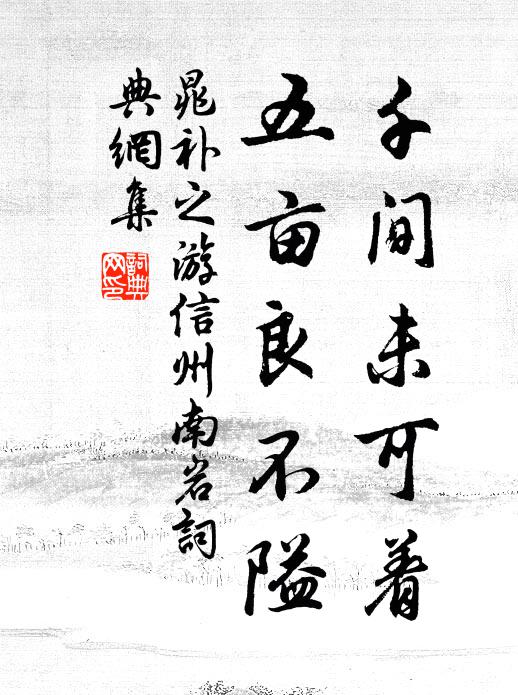 千间未可着
五亩良不隘
晁补之游信州南岩詞
典網集
詞典网印